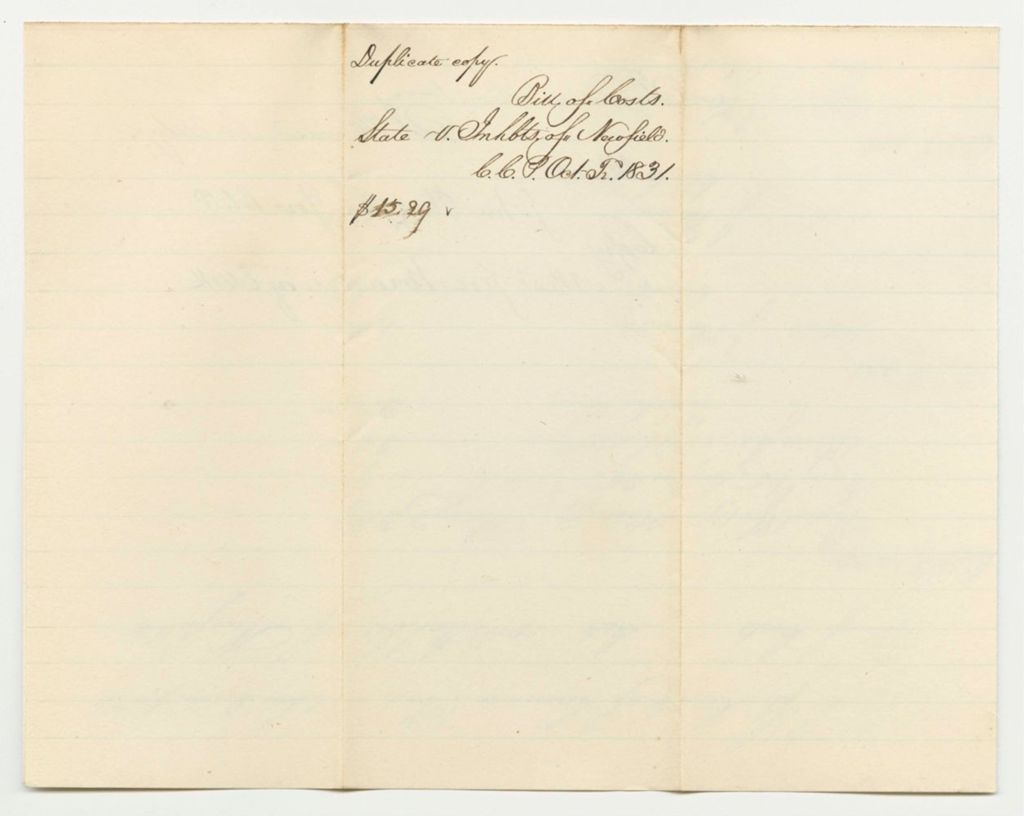 Duplicate copy.
Bill of Costs.
State v. Inhbts. of Newfield.
C. C. P. Oct. Tr. 1831.
$15.29